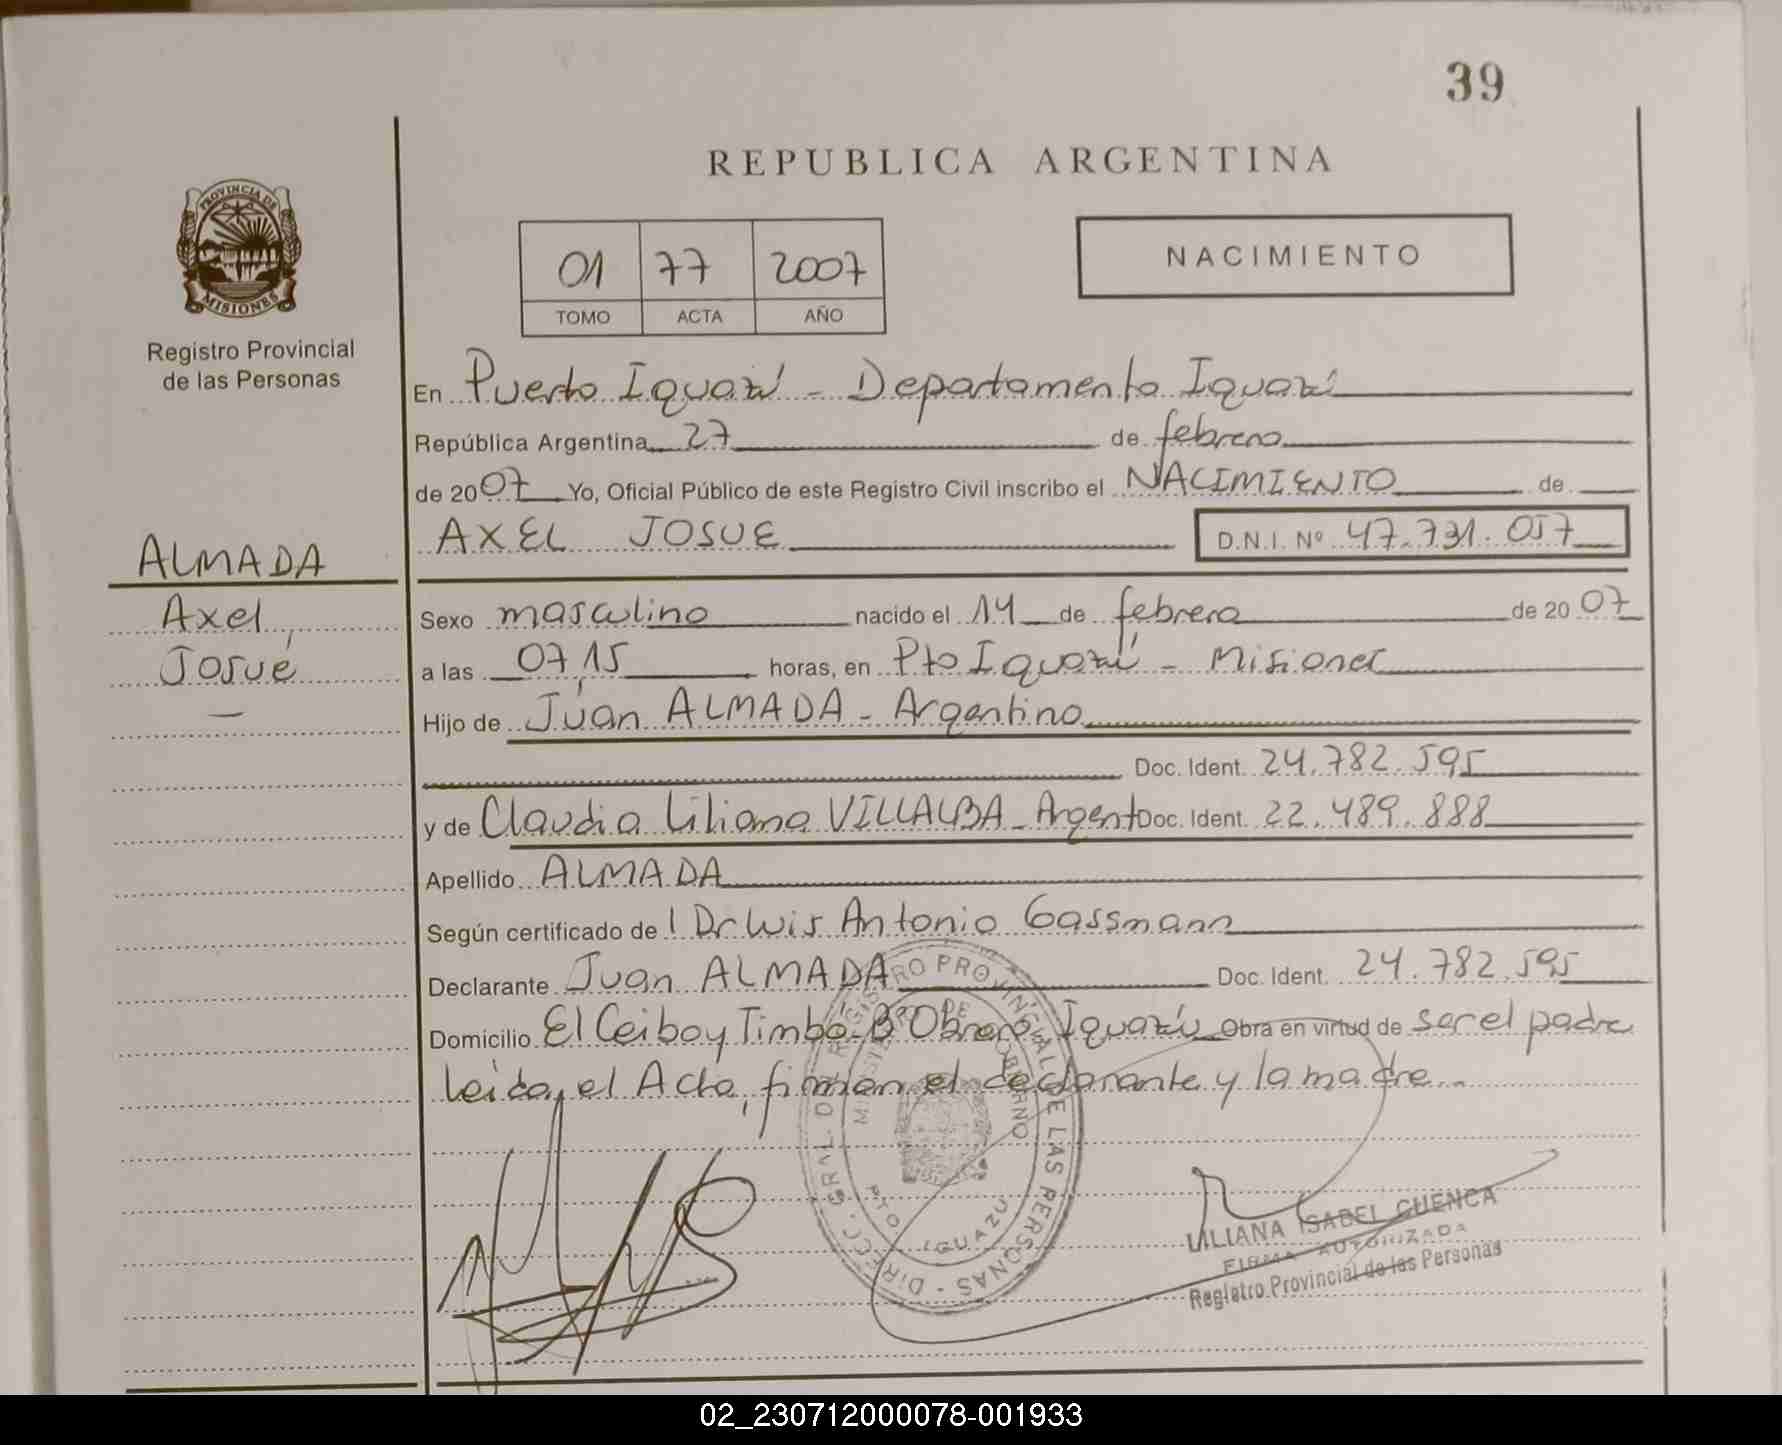 39
REPUBLICA ARGENTINA
PROVINCIA DE
MISIONES
01 77 2007
TOMO ACTA AÑO
NACIMIENTO
Registro Provincial
de las Personas
En Puerto Iguazú - Departamento Iguazú
República Argentina 27 de febrero
de 2007 Yo, Oficial Público de este Registro Civil inscribo el NACIMIENTO de
AXEL JOSUE D.N.I. Nº 47.731.057
ALMADA
Axel
Josué
Sexo masculino nacido el 14 de febrero de 2007
a las 07,15 horas, en Pto Iguazú - Misiones
Hijo de Juán ALMADA - Argentino
Doc. Ident. 24.782.595
y de Claudia Liliana VILLALBA - Argent Doc. Ident. 22.489.888
Apellido ALMADA
Según certificado de l Dr Luis Antonio Gassmann
Declarante Juan ALMADA Doc. Ident. 24.782.595
Domicilio El Ceibo y Timbó Bº Obrero Iguazú Obra en virtud de ser el padre
leida el Acta, firman el declarante y la madre.
DIRECC. GRAL. DEL REGISTRO PROVINCIAL DE LAS PERSONAS
MINISTERIO DE GOBIERNO
PTO IGUAZU
LILIANA ISABEL CUENCA
FIRMA AUTORIZADA
Registro Provincial de las Personas
02_230712000078-001933